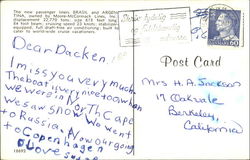 The new passenger liners, BRASIL and ARGEN-
TINA, owned by Moore-McCormack Lines, Inc.
displacement 22,770 tons, size 617 feet long,
84 foot beam; cruising speed 23 knots; stabilizer-
equipped, full draft-free air conditioning, built to
cater to world-wide cruise vacationers.
Dear Dacken,
I miss you very much
The boat is very nice too when
we were in North Cape
we saw snow. We went
to Russia. Now our going
to Copenhagen
Love
18692
Post Card
60
Mrs H. A. Jackson
17 Oakvale
Berkeley,
California